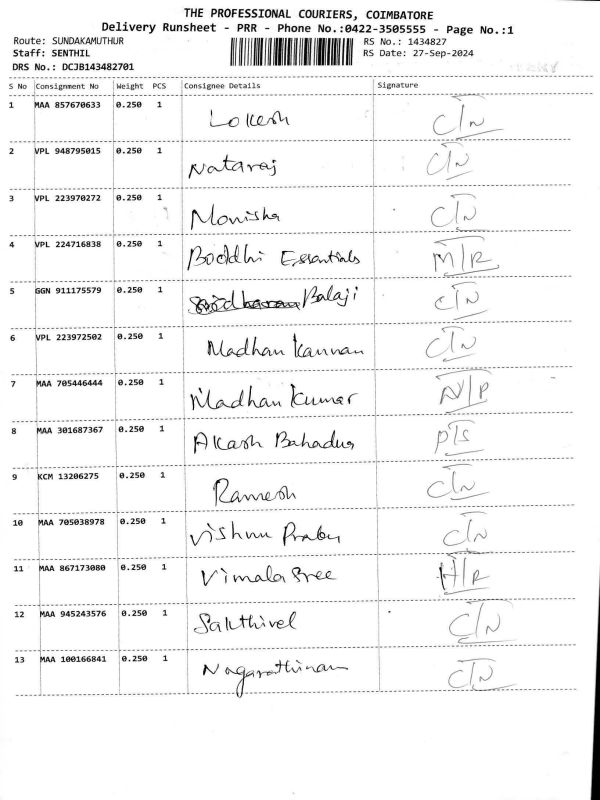 THE PROFESSIONAL COURIERS, COIMBATORE
Delivery Runsheet - PRR - Phone No.:0422-3505555 - Page No.:1
Route: SUNDAKAMUTHUR RS No.: 1434827
Staff: SENTHIL RS Date: 27-Sep-2024
DRS No.: DCJB143482701
S No Consignment No Weight PCS Consignee Details Signature
1 MAA 857670633 0.250 1 Lokesh C/N
2 VPL 948795015 0.250 1 Nataraj C/N
3 VPL 223970272 0.250 1 Monisha C/N
4 VPL 224716838 0.250 1 Boddhi Essentials M/R
5 GGN 911175579 0.250 1 Balaji C/N
6 VPL 223972502 0.250 1 Madhan Kannan C/N
7 MAA 705446444 0.250 1 Madhan Kumar N/P
8 MAA 301687367 0.250 1 Akash Bahadur P/S
9 KCM 13206275 0.250 1 Ramesh C/N
10 MAA 705038978 0.250 1 Vishnu Prabu C/N
11 MAA 867173080 0.250 1 Vimala Sree H/R
12 MAA 945243576 0.250 1 Sakthivel C/N
13 MAA 100166841 0.250 1 Nagarathinam C/N